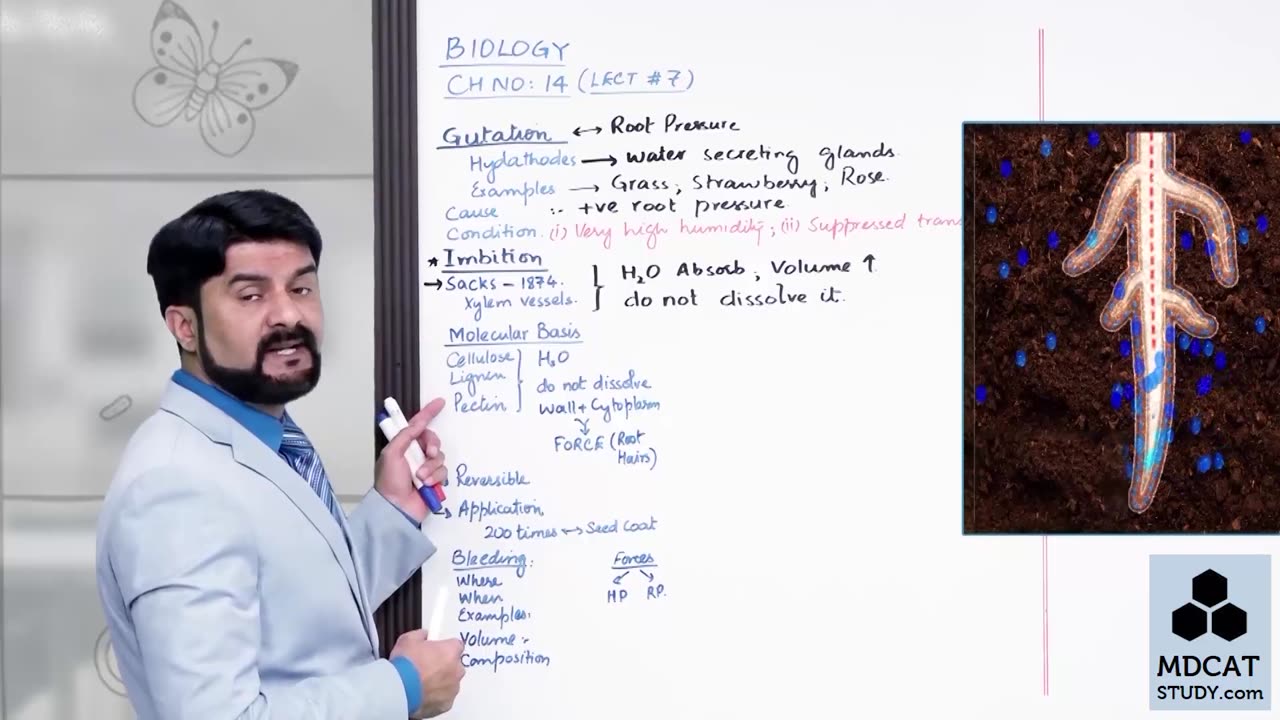 BIOLOGY
CH NO: 14 (LECT #7)
Gutation ↔ Root Pressure
Hydathodes → water secreting glands.
Examples → Grass, Strawberry, Rose.
Cause :- +ve root pressure
Condition. (i) Very high humidity; (ii) Suppressed trans
* Imbition
→ Sacks - 1874.
Xylem vessels.
} H₂O Absorb, Volume ↑.
do not dissolve it.
Molecular Basis
Cellulose
Lignin
Pectin
} H₂O
do not dissolve
Wall + Cytoplasm
FORCE (Root Hairs)
Reversible
Application
200 times ↔ Seed Coat
Bleeding:
Where
When
Examples:
Volume :-
Composition
Forces
HP RP.
MDCAT
STUDY.com